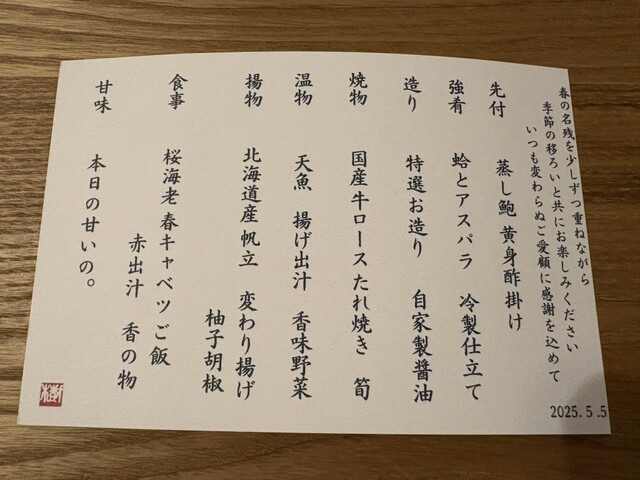 春の名残を少しずつ重ねながら
季節の移ろいと共にお楽しみください
いつも変わらぬご愛顧に感謝を込めて
先付 蒸し鮑 黄身酢掛け
強肴 蛤とアスパラ 冷製仕立て
造り 特選お造り 自家製醤油
焼物 国産牛ロースたれ焼き 筍
温物 天魚 揚げ出汁 香味野菜
揚物 北海道産帆立 変わり揚げ
柚子胡椒
食事 桜海老春キャベツご飯
赤出汁 香の物
甘味 本日の甘いの。
2025.5.5